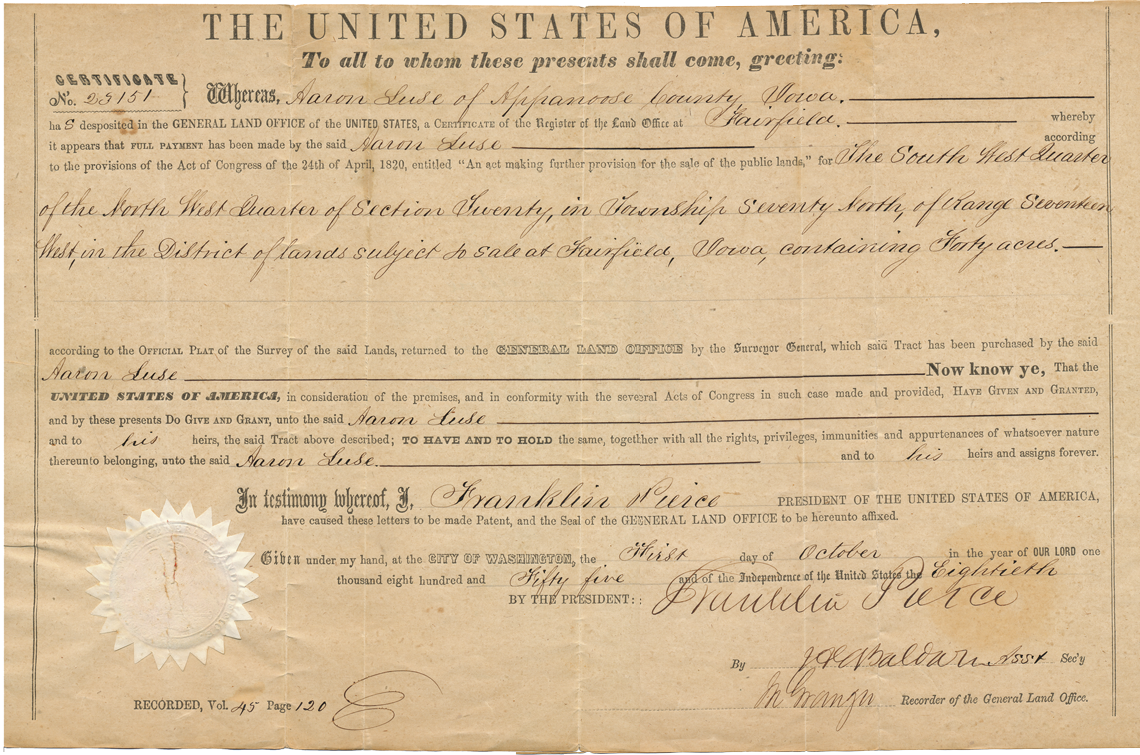 THE UNITED STATES OF AMERICA,
To all to whom these presents shall come, greeting:
CERTIFICATE
No. 25151
Whereas, Aaron Luse of Appanoose County Iowa.
haS desposited in the GENERAL LAND OFFICE of the UNITED STATES, a CERTIFICATE of the Register of the Land Office at Fairfield. whereby
it appears that FULL PAYMENT has been made by the said Aaron Luse according
to the provisions of the Act of Congress of the 24th of April, 1820, entitled "An act making further provision for the sale of the public lands," for The South West Quarter
of the North West Quarter of Section Twenty, in Township Seventy North, of Range Seventeen
West, in the District of lands subject to sale at Fairfield, Iowa, containing Forty acres.
according to the OFFICIAL PLAT of the Survey of the said Lands, returned to the GENERAL LAND OFFICE by the Surveyor General, which said Tract has been purchased by the said
Aaron Luse Now know ye, That the
UNITED STATES OF AMERICA, in consideration of the premises, and in conformity with the several Acts of Congress in such case made and provided, HAVE GIVEN AND GRANTED,
and by these presents DO GIVE AND GRANT, unto the said Aaron Luse
and to his heirs, the said Tract above described; TO HAVE AND TO HOLD the same, together with all the rights, privileges, immunities and appurtenances of whatsoever nature
thereunto belonging, unto the said Aaron Luse. and to his heirs and assigns forever.
In testimony whereof, I, Franklin Pierce PRESIDENT OF THE UNITED STATES OF AMERICA,
have caused these letters to be made Patent, and the Seal of the GENERAL LAND OFFICE to be hereunto affixed.
Given under my hand, at the CITY OF WASHINGTON, the First day of October in the year of OUR LORD one
thousand eight hundred and Fifty five and of the Independence of the United States the Eightieth
BY THE PRESIDENT:: Franklin Pierce
By Asst Sec'y
Recorder of the General Land Office.
RECORDED, Vol. 45 Page 120